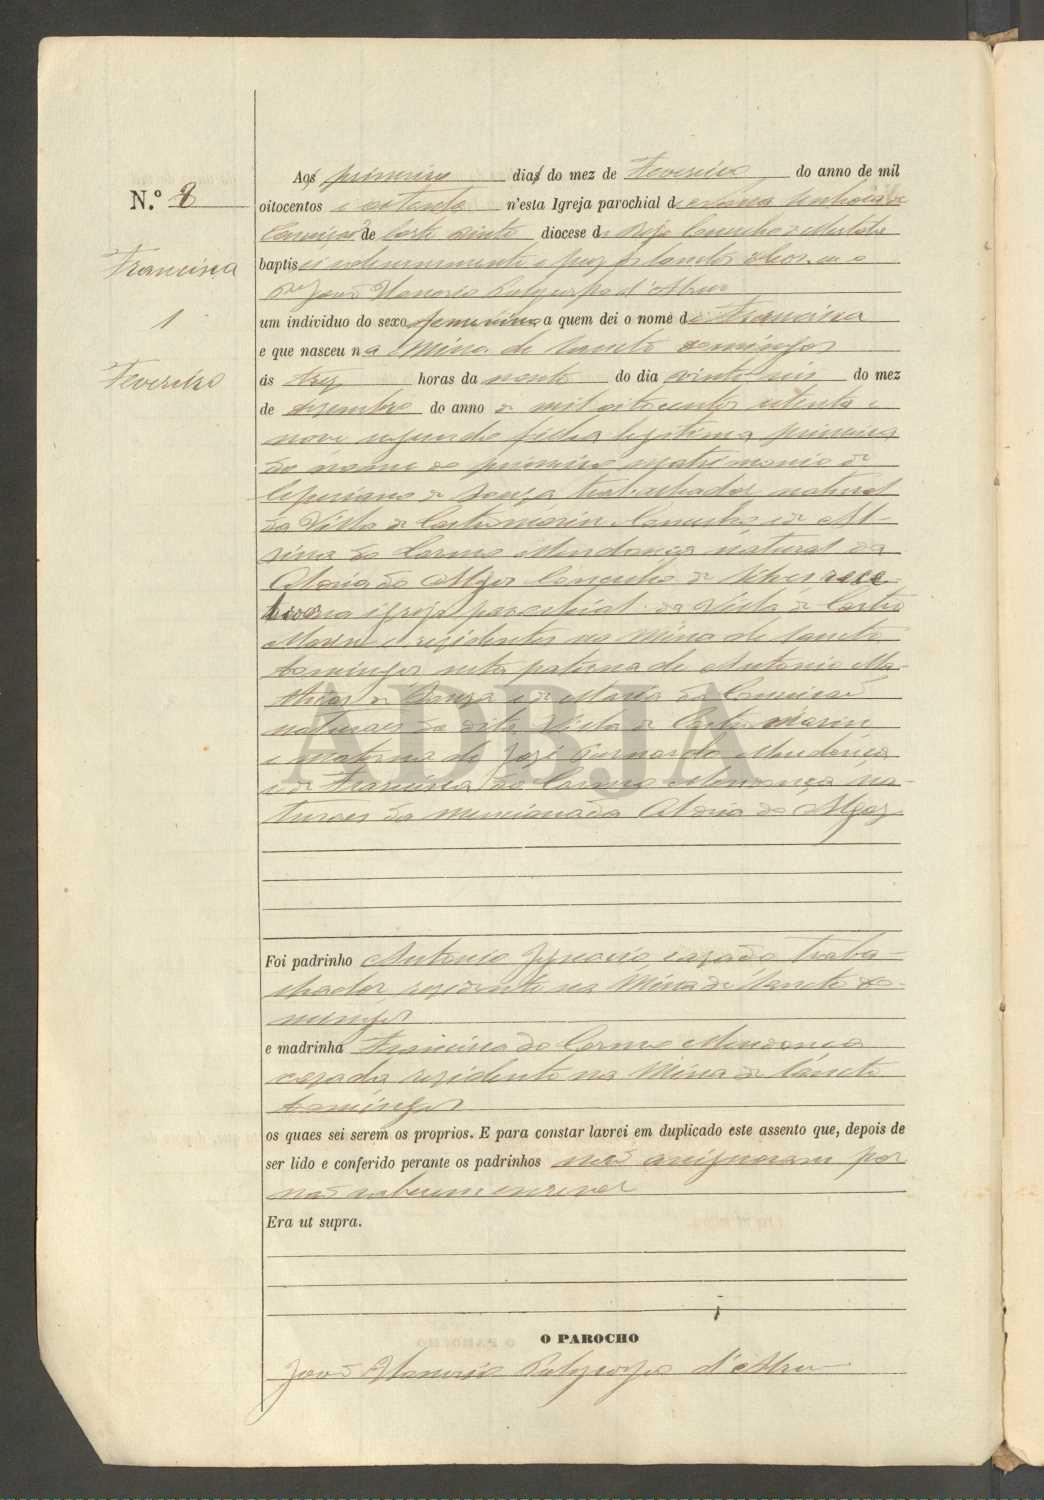 N.º 8
Francisca
1
Fevereiro
Aos primeiro dias do mez de Fevereiro do anno de mil
oitocentos e oitenta n'esta Igreja parochial de
Conceição de Corte Pinto diocese de Beja Concelho de Mertola
baptisei solemnemente e puz os Sanctos oleos eu o
João
um individuo do sexo femenino a quem dei o nome de Francisca
e que nasceu na Mina de Sancto Domingos
ás trez horas da noute do dia vinte seis do mez
de dezembro do anno de mil oitocentos setenta e
nove segunda filha legitima primeira
do nome do primeiro matrimonio de
Cepriano de Souza trabalhador natural
da Villa de Castromarim Concelho e de Al-
rina do Carmo Mendonça natural da
Aldeia do Algoz Concelho de Silves rece-
bidos na igreja parochial da Villa de Castro
Marim e rezidentes na Mina de Sancto
Domingos neta paterna de Antonio Ma-
thias de Souza e de Maria da Conceicão
naturaes da dita Villa de Castro Marim
e materna de José Bernardo Mendonça
e de Francisca do Carmo Mendonça na-
turaes da mencionada Aldeia do Algoz
Foi padrinho Antonio Ignacio cazado traba-
lhador rezidente na Mina de Sancto Do-
mingos
e madrinha Francisca do Carmo Mendonca
cazada rezidente na Mina de Sancto
Domingos
os quaes sei serem os proprios. E para constar lavrei em duplicado este assento que, depois de
ser lido e conferido perante os padrinhos não assignaram por
não saberem escrever
Era ut supra.
O PAROCHO
João
ADBJA